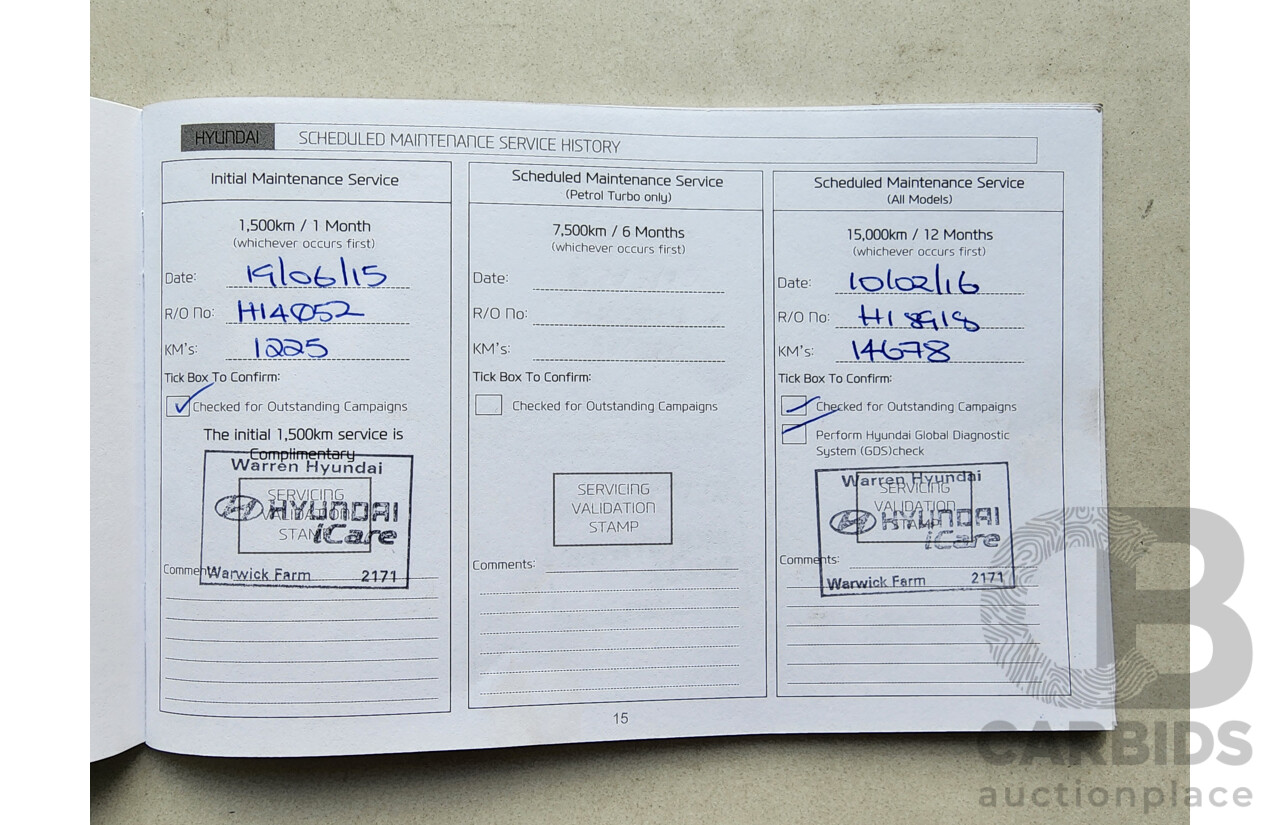 HYUNDAI SCHEDULED MAINTENANCE SERVICE HISTORY
Initial Maintenance Service
1,500km / 1 Month
(whichever occurs first)
Date: 19/06/15
R/O No: H14052
KM's: 1225
Tick Box To Confirm:
Checked for Outstanding Campaigns
The initial 1,500km service is
Complimentary
Warren Hyundai
SERVICING
VALIDATION
STAMP
HYUNDAI
iCare
Comments:
Warwick Farm 2171
Scheduled Maintenance Service
(Petrol Turbo only)
7,500km / 6 Months
(whichever occurs first)
Date:
R/O No:
KM's:
Tick Box To Confirm:
Checked for Outstanding Campaigns
SERVICING
VALIDATION
STAMP
Comments:
Scheduled Maintenance Service
(All Models)
15,000km / 12 Months
(whichever occurs first)
Date: 10/02/16
R/O No: H18918
KM's: 14678
Tick Box To Confirm:
Checked for Outstanding Campaigns
Perform Hyundai Global Diagnostic
System (GDS)check
Warren Hyundai
SERVICING
VALIDATION
STAMP
HYUNDAI
iCare
Comments:
Warwick Farm 2171
15
CB
CARBIDS
auctionplace